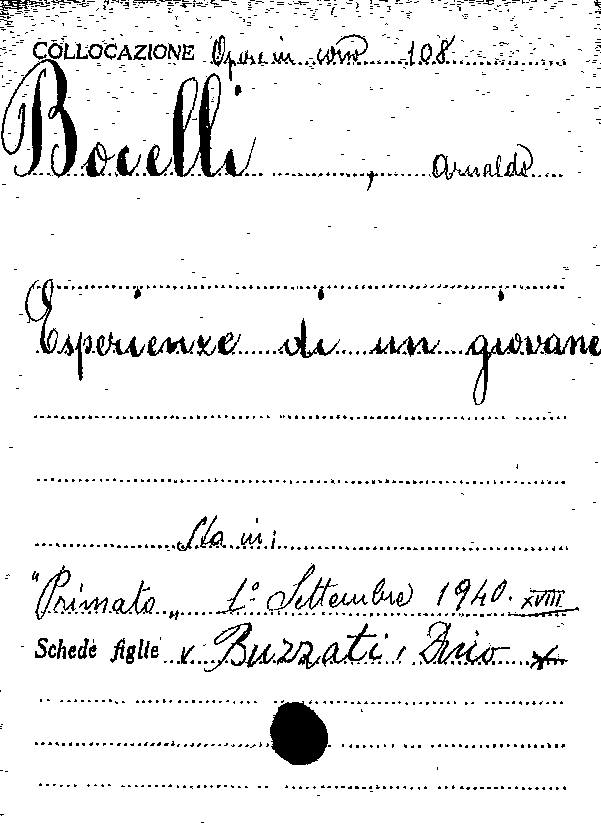 COLLOCAZIONE Opere in corso 108
Bocelli, Arnaldo
Esperienze di un giovane
Sta in:
"Primato" 1° Settembre 1940. XVIII
Schede figlie v. Buzzati, Dino